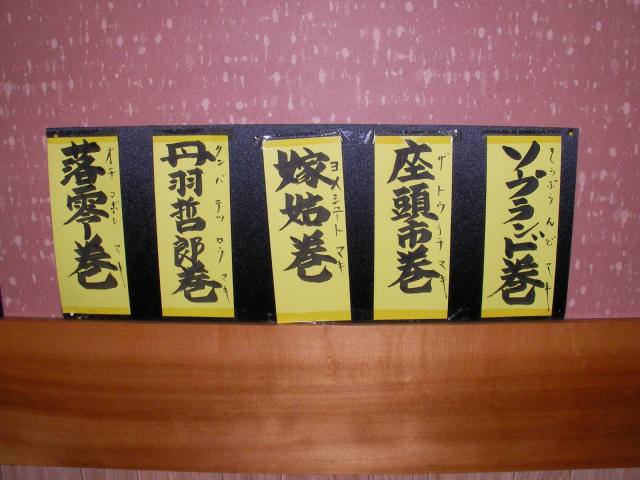 ソプランド巻
そうぷらんどマキ
座頭市巻
ザトウイチマキ
嫁姑巻
ヨメシュートマキ
丹羽哲郎巻
タンバテツロウマキ
落零し巻
オチコボレマキ